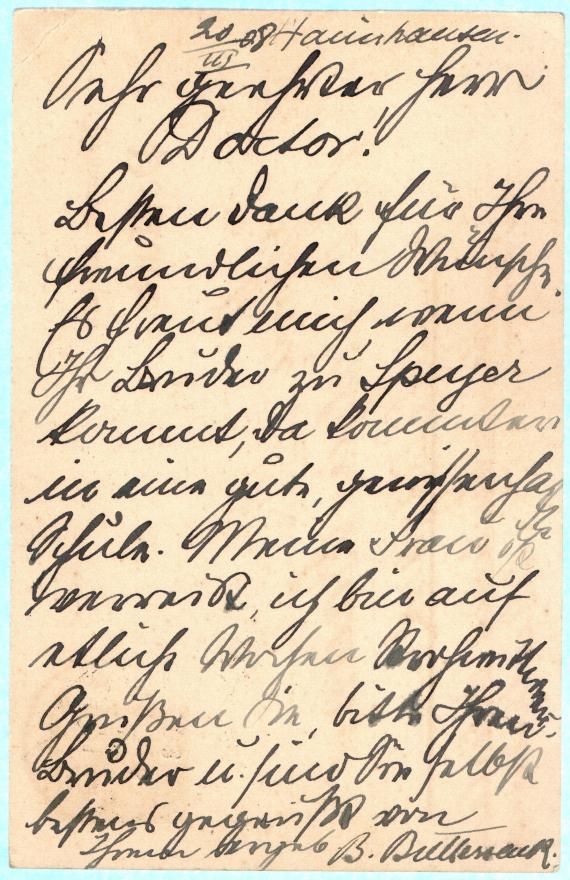 20/III 08 Haimhausen.
Sehr geehrter Herr
Doctor!
Besten Dank für Ihre
freundlichen Wünsche.
Es freut mich wenn
Ihr Bruder zu Speyer
kommt, da kommt er
in eine gute, gewissenhafte
Schule. Meine Frau ist
verreist, ich bin auf
etliche Wochen Strohwittwer.
Grüßen Sie, bitte Ihren
Bruder u. sind Sie selbst
bestens gegrüßt von
Ihrem ergeb B. Buttersack.